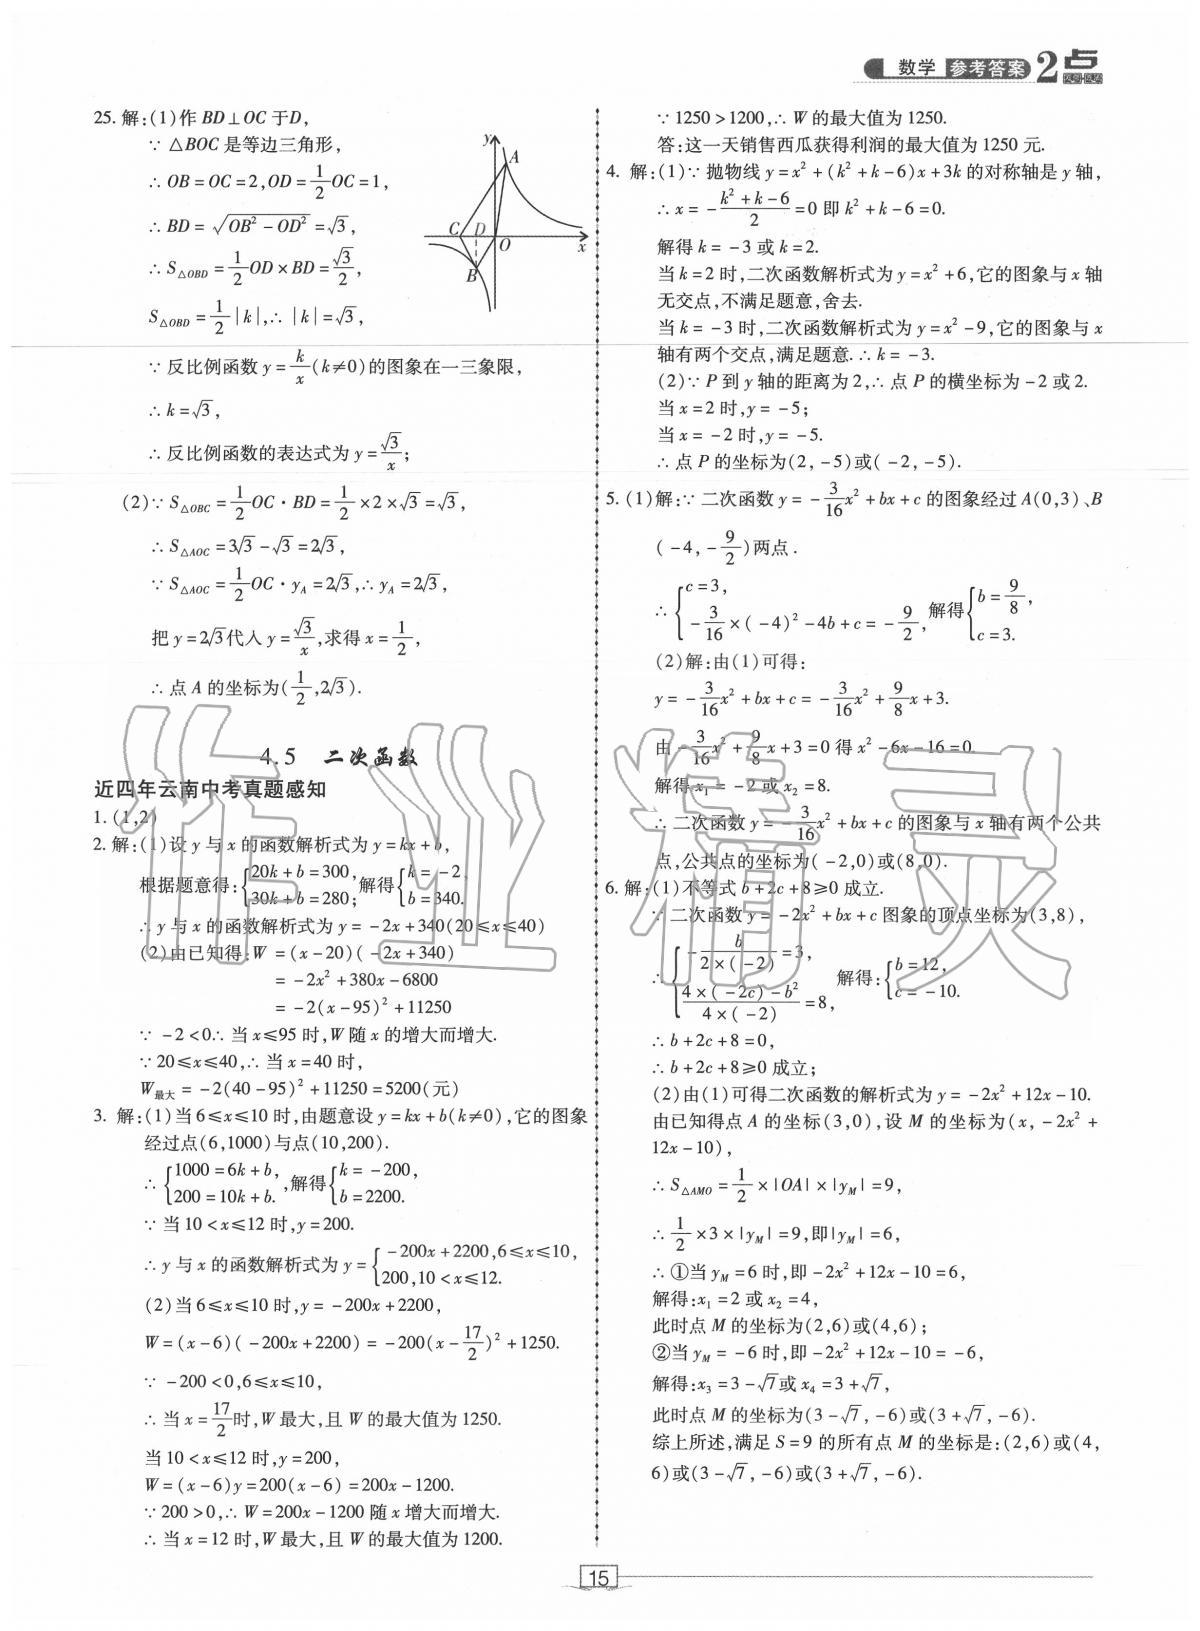 数学 参考答案 2点
25. 解:(1)作 BD⊥OC 于D,
∵ △BOC 是等边三角形,
∴ OB=OC=2,OD=1/2 OC=1,
∴ BD=√(OB²-OD²)=√3,
∴ S△OBD=1/2 OD×BD=√3/2,
S△OBD=1/2|k|,∴ |k|=√3,
∵ 反比例函数 y=k/x(k≠0)的图象在一三象限,
∴ k=√3,
∴ 反比例函数的表达式为 y=√3/x;
(2)∵ S△OBC=1/2 OC·BD=1/2×2×√3=√3,
∴ S△AOC=3√3-√3=2√3,
∵ S△AOC=1/2 OC·yA=2√3,∴ yA=2√3,
把 y=2√3代入 y=√3/x,求得 x=1/2,
∴ 点 A 的坐标为(1/2,2√3).
y
A
C
D
O
x
B
4.5 二次函数
近四年云南中考真题感知
1. (1,2)
2. 解:(1)设 y 与 x 的函数解析式为 y=kx+b,
根据题意得:{20k+b=300, 30k+b=280; 解得{k=-2, b=340.
∴ y 与 x 的函数解析式为 y=-2x+340(20≤x≤40)
(2)由已知得:W=(x-20)(-2x+340)
=-2x²+380x-6800
=-2(x-95)²+11250
∵ -2<0∴ 当 x≤95 时,W 随 x 的增大而增大.
∵ 20≤x≤40,∴ 当 x=40 时,
W最大=-2(40-95)²+11250=5200(元)
3. 解:(1)当 6≤x≤10 时,由题意设 y=kx+b(k≠0),它的图象
经过点(6,1000)与点(10,200).
∴ {1000=6k+b, 200=10k+b. ,解得{k=-200, b=2200.
∵ 当 10<x≤12 时,y=200.
∴ y 与 x 的函数解析式为 y={-200x+2200,6≤x≤10, 200,10<x≤12.
(2)当 6≤x≤10 时,y=-200x+2200,
W=(x-6)(-200x+2200)=-200(x-17/2)²+1250.
∵ -200<0,6≤x≤10,
∴ 当 x=17/2时,W 最大,且 W 的最大值为 1250.
当 10<x≤12 时,y=200,
W=(x-6)y=200(x-6)=200x-1200.
∵ 200>0,∴ W=200x-1200 随 x 增大而增大.
∴ 当 x=12 时,W 最大,且 W 的最大值为 1200.
∵ 1250>1200,∴ W 的最大值为 1250.
答:这一天销售西瓜获得利润的最大值为 1250 元.
4. 解:(1)∵ 抛物线 y=x²+(k²+k-6)x+3k 的对称轴是 y 轴,
∴ x=-(k²+k-6)/2=0 即 k²+k-6=0.
解得 k=-3 或 k=2.
当 k=2 时,二次函数解析式为 y=x²+6,它的图象与 x 轴
无交点,不满足题意,舍去.
当 k=-3 时,二次函数解析式为 y=x²-9,它的图象与 x
轴有两个交点,满足题意.∴ k=-3.
(2)∵ P 到 y 轴的距离为 2,∴ 点 P 的横坐标为 -2 或 2.
当 x=2 时,y=-5;
当 x=-2 时,y=-5.
∴ 点 P 的坐标为(2,-5)或(-2,-5).
5. (1)解:∵ 二次函数 y=-3/16 x²+bx+c 的图象经过 A(0,3)、B
(-4,-9/2)两点.
∴ {c=3, -3/16×(-4)²-4b+c=-9/2, 解得{b=9/8, c=3.
(2)解:由(1)可得:
y=-3/16 x²+bx+c=-3/16 x²+9/8 x+3.
由-3/16 x²+9/8 x+3=0 得 x²-6x-16=0.
解得 x₁=-2 或 x₂=8.
∴ 二次函数 y=-3/16 x²+bx+c 的图象与 x 轴有两个公共
点,公共点的坐标为(-2,0)或(8,0).
6. 解:(1)不等式 b+2c+8≥0 成立.
∵ 二次函数 y=-2x²+bx+c 图象的顶点坐标为(3,8),
∴ {-b/(2×(-2))=3, (4×(-2c)-b²)/(4×(-2))=8, 解得:{b=12, c=-10.
∴ b+2c+8=0,
∴ b+2c+8≥0 成立;
(2)由(1)可得二次函数的解析式为 y=-2x²+12x-10.
由已知得点 A 的坐标(3,0),设 M 的坐标为(x,-2x²+
12x-10),
∴ S△AMO=1/2×|OA|×|yM|=9,
∴ 1/2×3×|yM|=9,即|yM|=6,
∴ ①当 yM=6 时,即-2x²+12x-10=6,
解得:x₁=2 或 x₂=4,
此时点 M 的坐标为(2,6)或(4,6);
②当 yM=-6 时,即-2x²+12x-10=-6,
解得:x₃=3-√7或 x₄=3+√7,
此时点 M 的坐标为(3-√7,-6)或(3+√7,-6).
综上所述,满足 S=9 的所有点 M 的坐标是:(2,6)或(4,
6)或(3-√7,-6)或(3+√7,-6).
作业精灵
15